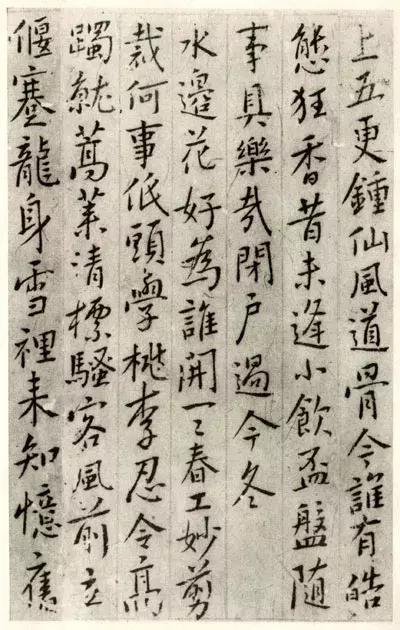 上五更鍾仙風道骨今誰有皓
態狂香昔未逢小飲盃盤隨
事具樂哉閉戶過今冬
水邊花好為誰開一〻春工妙剪
裁何事低頭學桃李忍令高
躅就蒿萊清標騷客風前立
偃蹇龍身雪裡来知憶舊